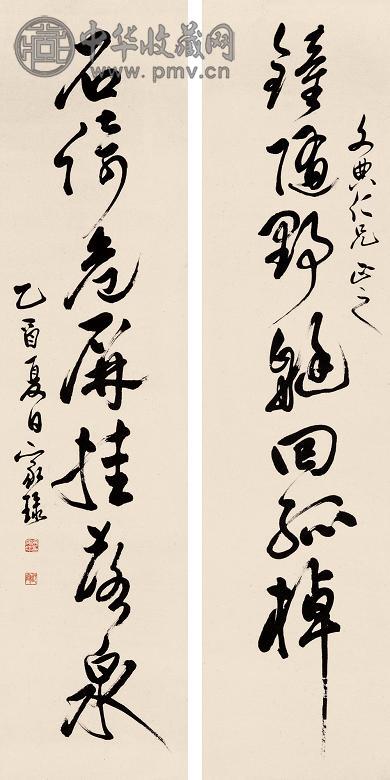 中华收藏网
www.pmv.cn
文典仁兄正之
鐘隨野艇回孤棹
石倚危屏挂落泉
乙酉夏日家